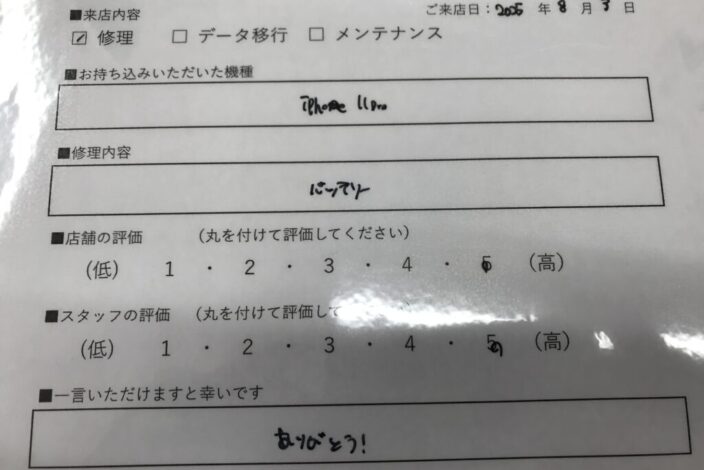 ■来店内容
ご来店日：2025 年 8 月 3 日
☑ 修理 □ データ移行 □ メンテナンス
■お持ち込みいただいた機種
iphone 11pro
■修理内容
バッテリー
■店舗の評価 （丸を付けて評価してください）
（低） 1 ・ 2 ・ 3 ・ 4 ・ 5 （高）
■スタッフの評価 （丸を付けて評価して
（低） 1 ・ 2 ・ 3 ・ 4 ・ 5 （高）
■一言いただけますと幸いです
ありがとう！